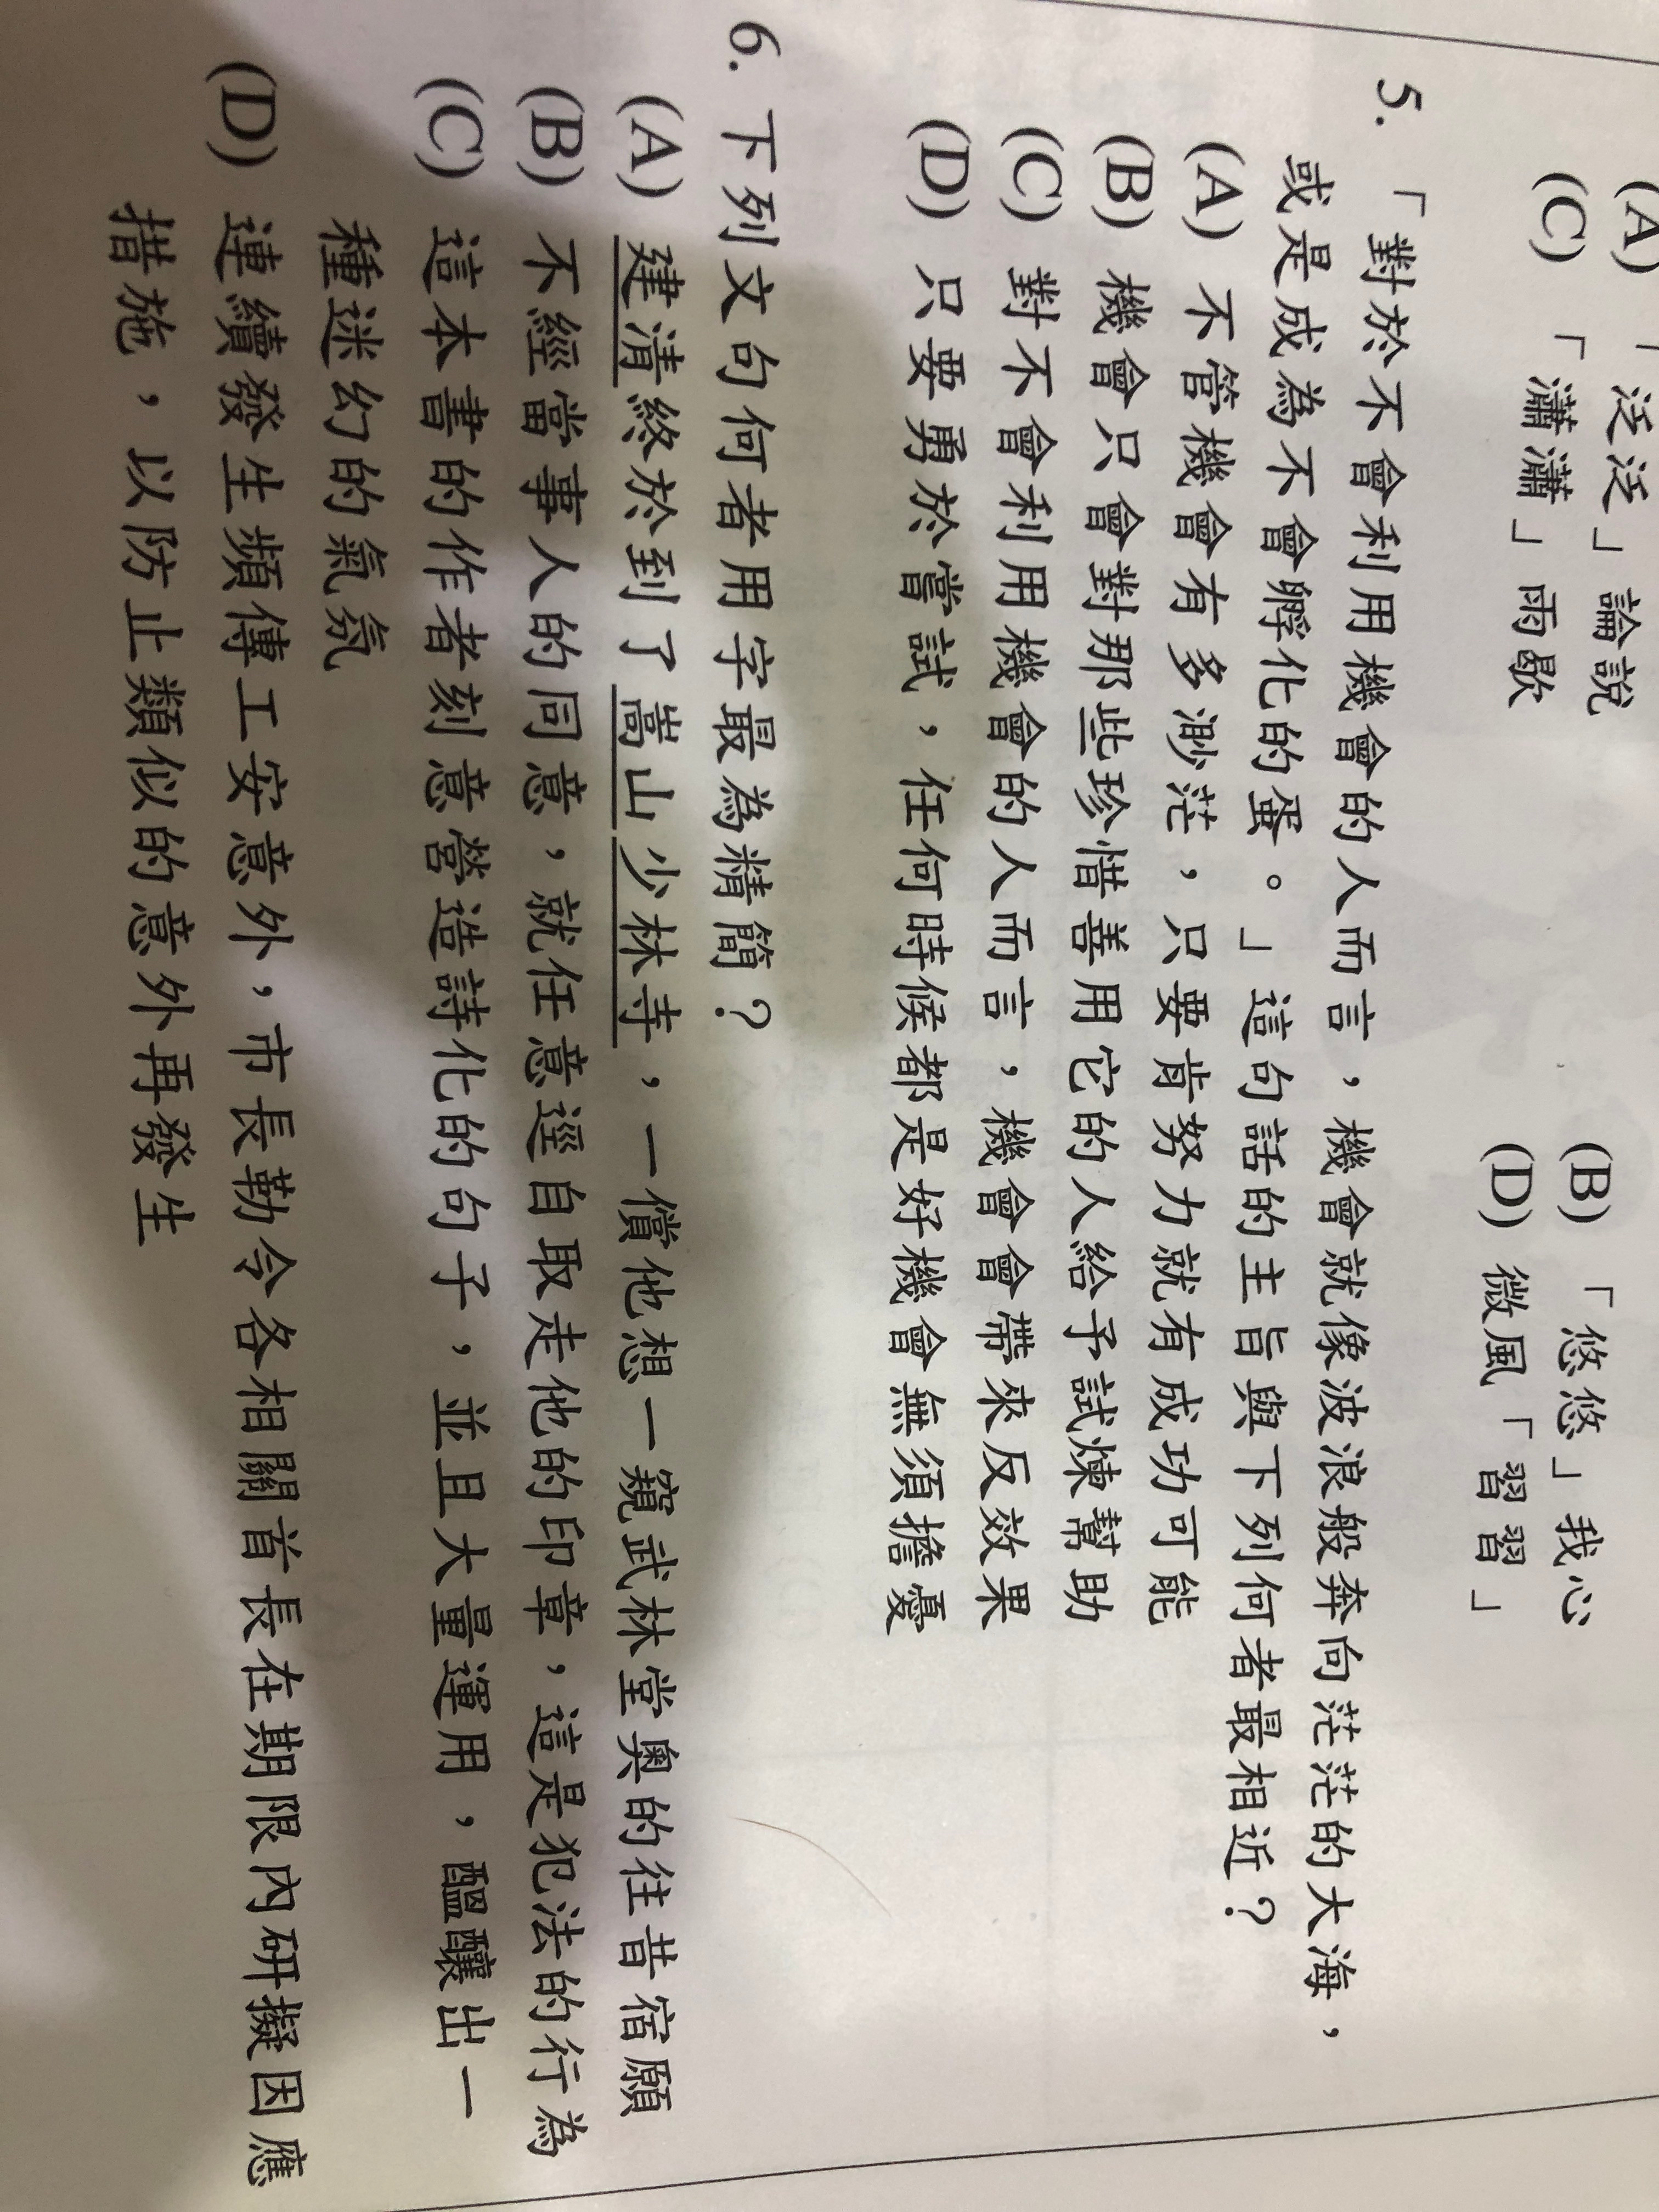 (A) 「泛泛」論說
(B) 「悠悠」我心
(C) 「瀟瀟」雨歇
(D) 微風「習習」
5. 「對於不會利用機會的人而言，機會就像波浪般奔向茫茫的大海，
或是成為不會孵化的蛋。」這句話的主旨與下列何者最相近？
(A) 不管機會有多渺茫，只要肯努力就有成功可能
(B) 機會只會對那些珍惜善用它的人給予試煉幫助
(C) 對不會利用機會的人而言，機會會帶來反效果
(D) 只要勇於嘗試，任何時候都是好機會無須擔憂
6. 下列文句何者用字最為精簡？
(A) 建清終於到了嵩山少林寺，一償他想一窺武林堂奧的往昔宿願
(B) 不經當事人的同意，就任意逕自取走他的印章，這是犯法的行為
(C) 這本書的作者刻意營造詩化的句子，並且大量運用，醞釀出一
種迷幻的氣氛
(D) 連續發生頻傳工安意外，市長勒令各相關首長在期限內研擬因應
措施，以防止類似的意外再發生